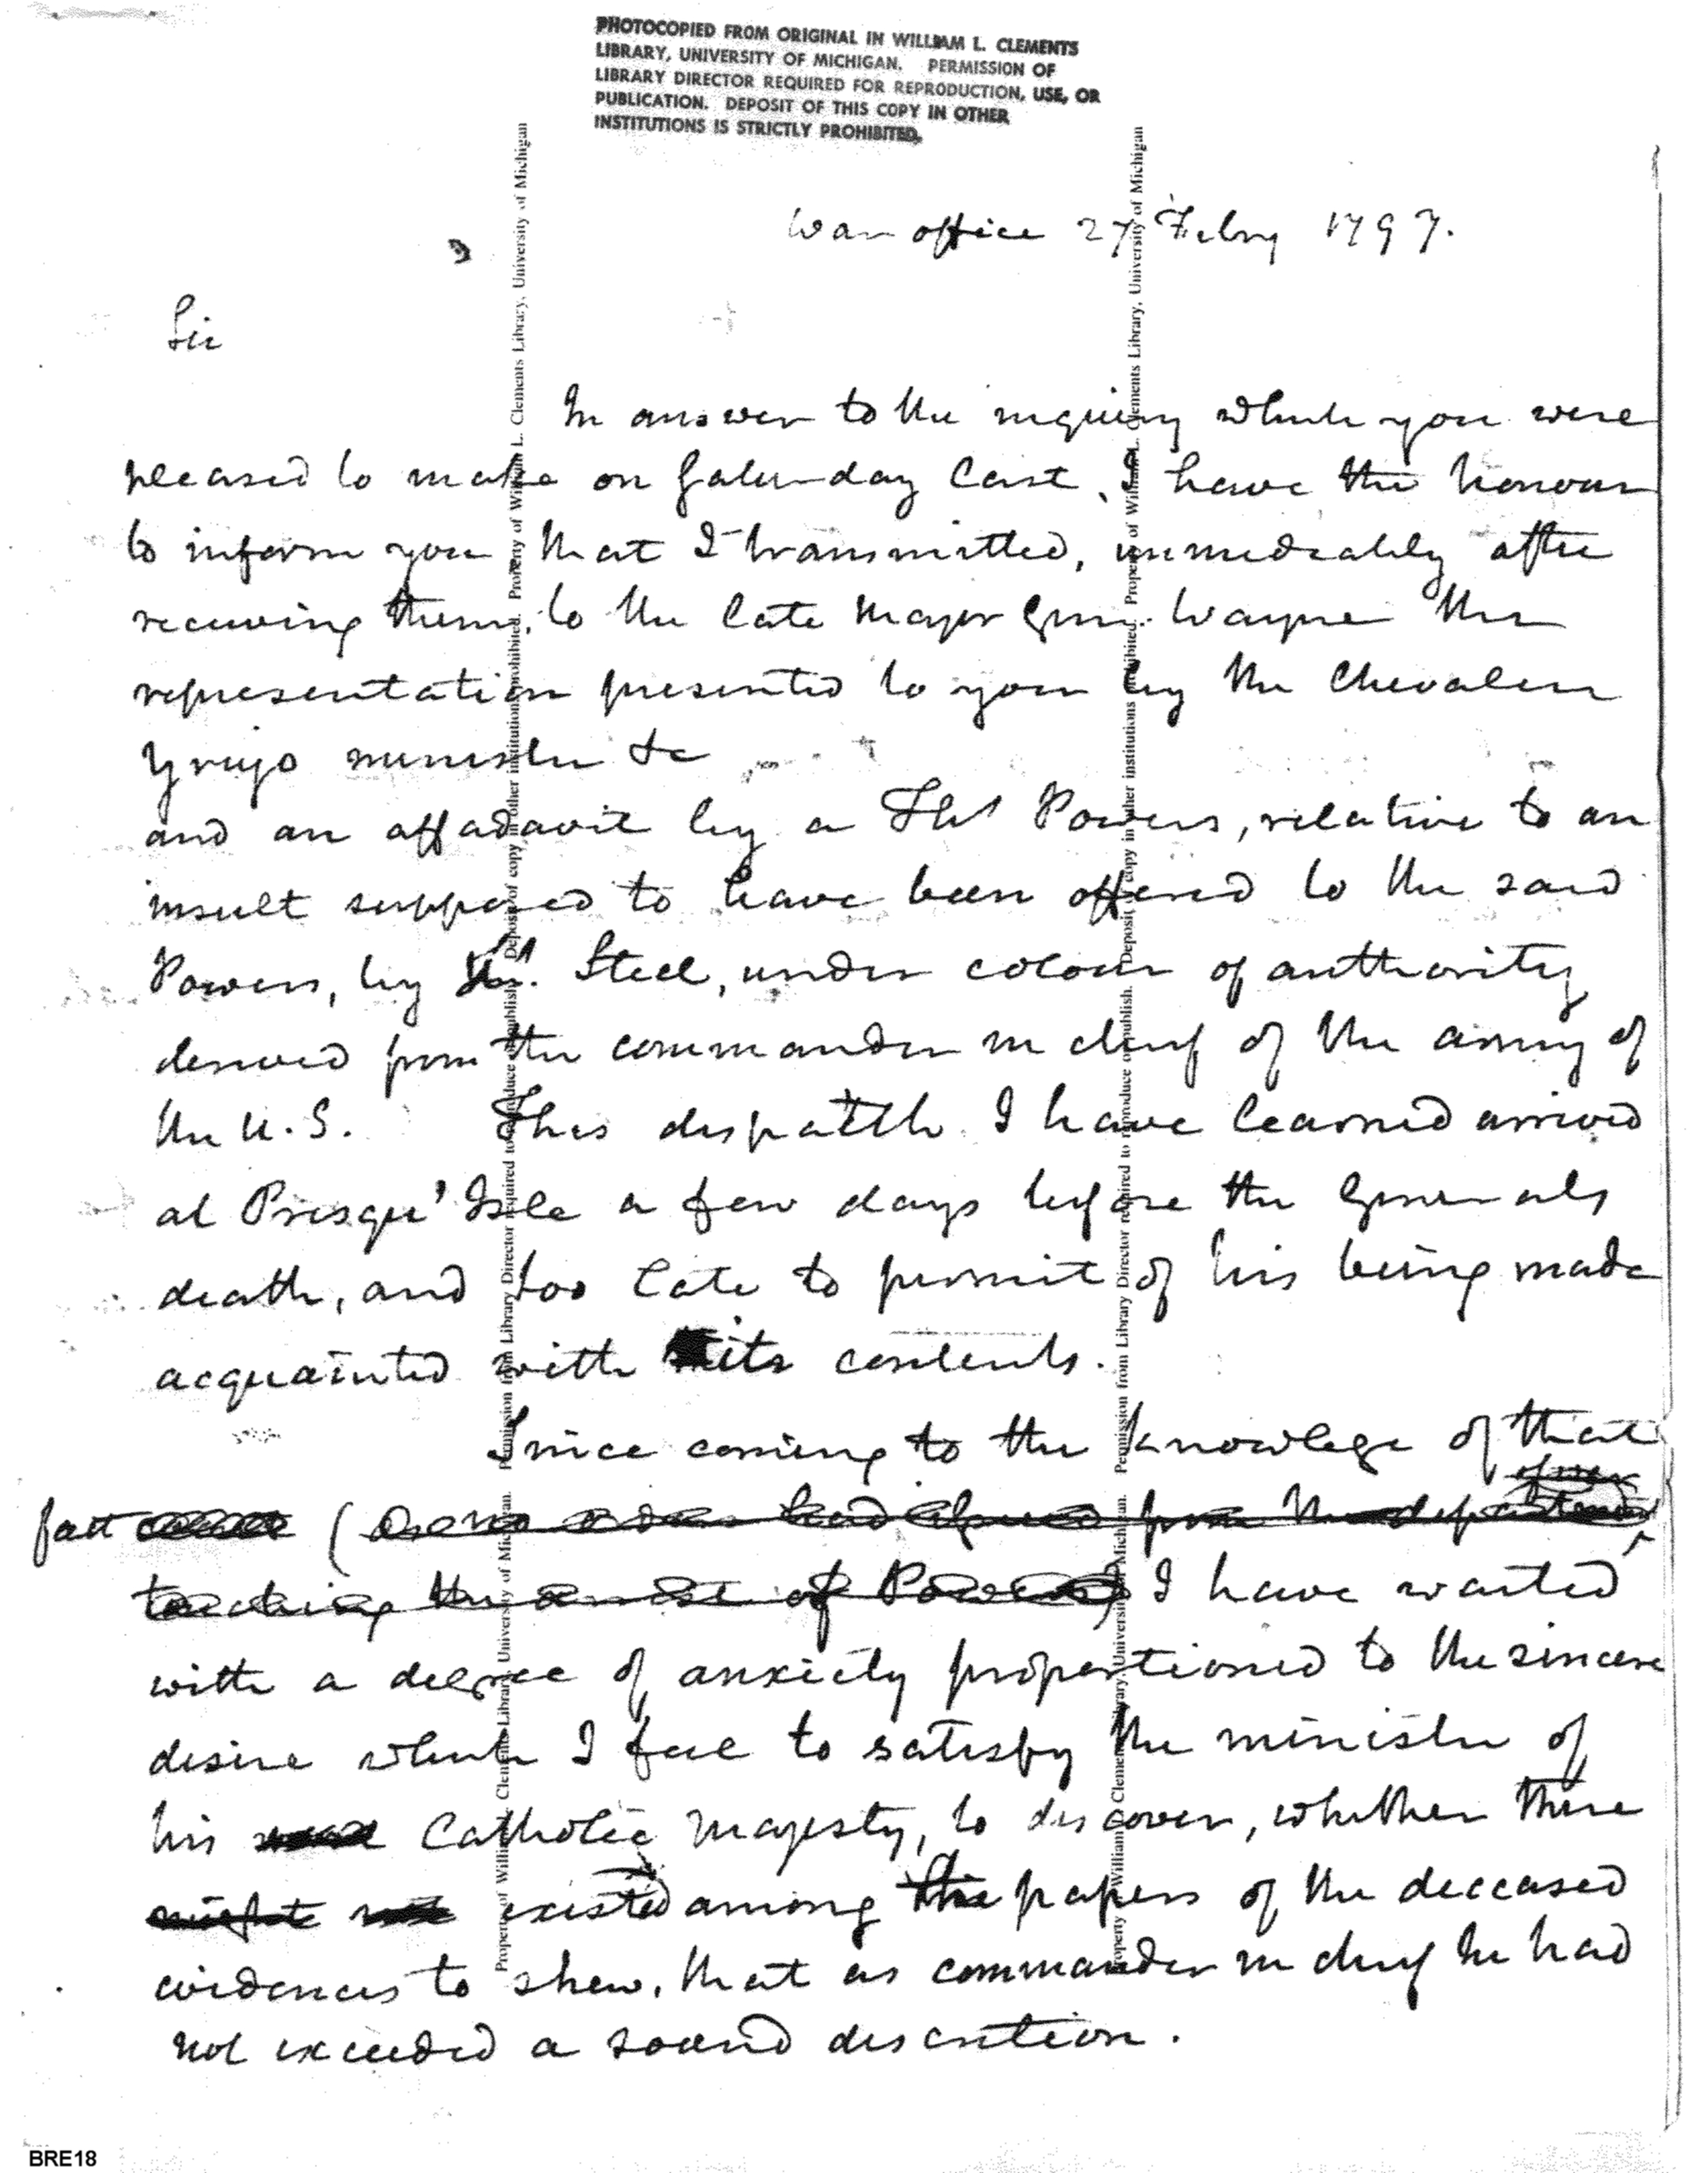 PHOTOCOPIED FROM ORIGINAL IN WILLIAM L. CLEMENTS
LIBRARY, UNIVERSITY OF MICHIGAN. PERMISSION OF
LIBRARY DIRECTOR REQUIRED FOR REPRODUCTION, USE, OR
PUBLICATION. DEPOSIT OF THIS COPY IN OTHER
INSTITUTIONS IS STRICTLY PROHIBITED.
War office 27 Febry 1797.
Sir
In answer to the inquiry which you were
pleased to make on Saturday last, I have the honour
to inform you that I transmitted, immediately after
receiving them, to the late Major Genl. Wayne the
representation presented to you by the Chevalier
Yrujo minister &c
and an affadavit by a Ths Powers, relative to an
insult supposed to have been offered to the said
Powers, by Lt. Steel, under colour of authority
derived from the commander in chief of the army of
the U.S. This dispatch I have learned arrived
at Presqu' Isle a few days before the Generals
death, and too late to permit of his being made
acquainted with its contents.
Since coming to the knowlege of that
fact (As no order had issued from the department
touching the arrest of Powers) I have waited
with a degree of anxiety proportioned to the sincere
desire which I feel to satisfy the minister of
his Catholic Majesty, to discover, whether there
might not existed among the papers of the deceased
evidences to shew, that as commander in chief he had
not exceeded a sound discretion.
Property of William L. Clements Library, University of Michigan. Permission from Library Director required to reproduce or publish. Deposit of copy in other institutions prohibited. Property of William L. Clements Library, University of Michigan
Property of William L. Clements Library, University of Michigan. Permission from Library Director required to reproduce or publish. Deposit of copy in other institutions prohibited. Property of William L. Clements Library, University of Michigan
BRE18